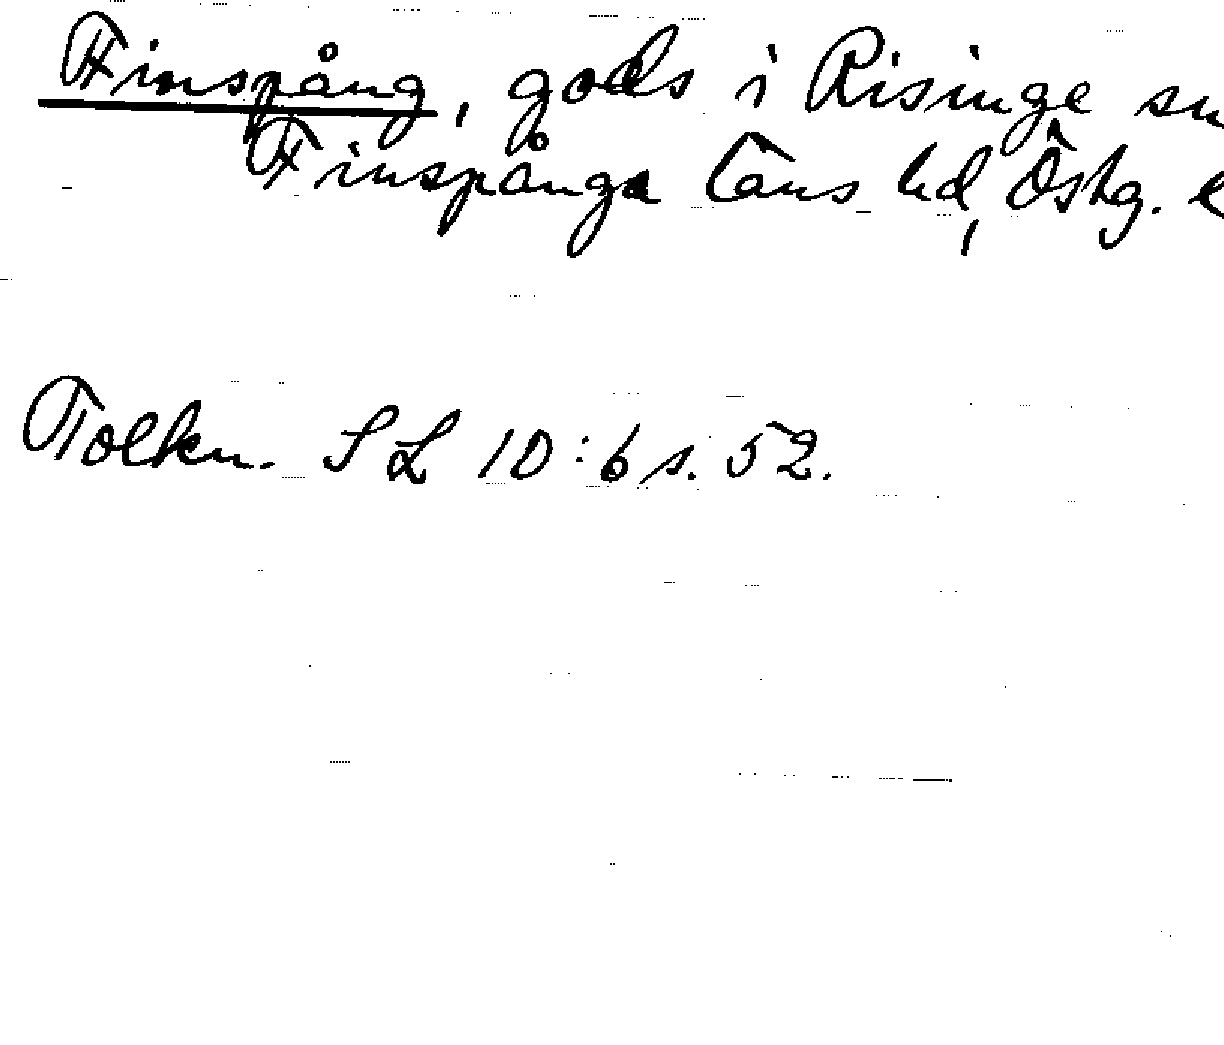 Finspång, gods i Risinge sn
Finspånga läns hd, Östg. l
Tolkn. SL 10:6 s. 52.